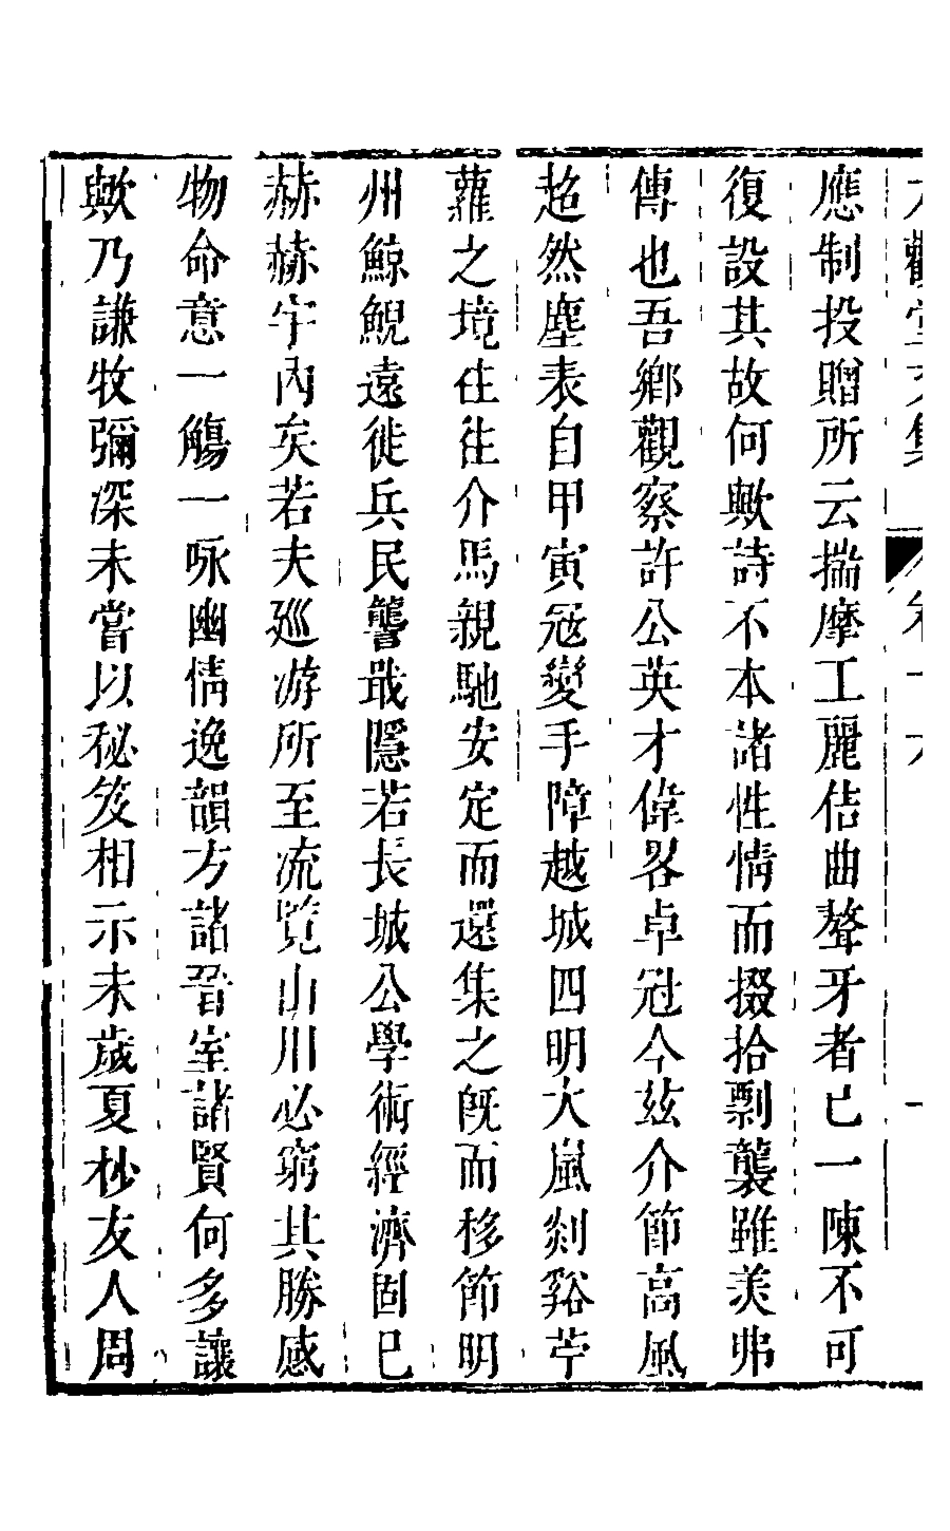 應制投贈所云揣摩工麗佶曲聱牙者已一陳不可
復設其故何歟詩不本諸性情而掇拾剽襲雖美弗
傳也吾鄉觀察許公英才偉畧卓冠今茲介節高風
超然塵表自甲寅冦變手障越城四明大嵐剡谿苧
蘿之境往往介馬親馳安定而還集之旣而移節明
州鯨鯢遠徙兵民讋戢隱若長城公學術經濟固已
赫赫宇內矣若夫廵游所至流覧山川必窮其勝感
物命意一觴一咏幽情逸韻方諸晉室諸賢何多讓
歟乃謙牧彌深未嘗以秘笈相示未歲夏杪友人周